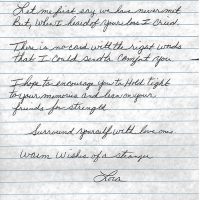 Let me first say we have never met
But, when I heard of your loss I cried.
There is no card with the right words
that I could send to comfort you
I hope to encourage you to Hold tight
to your memories and lean on your
friends for strength
Surround yourself with love ones
Warm Wishes of a stranger
Lois